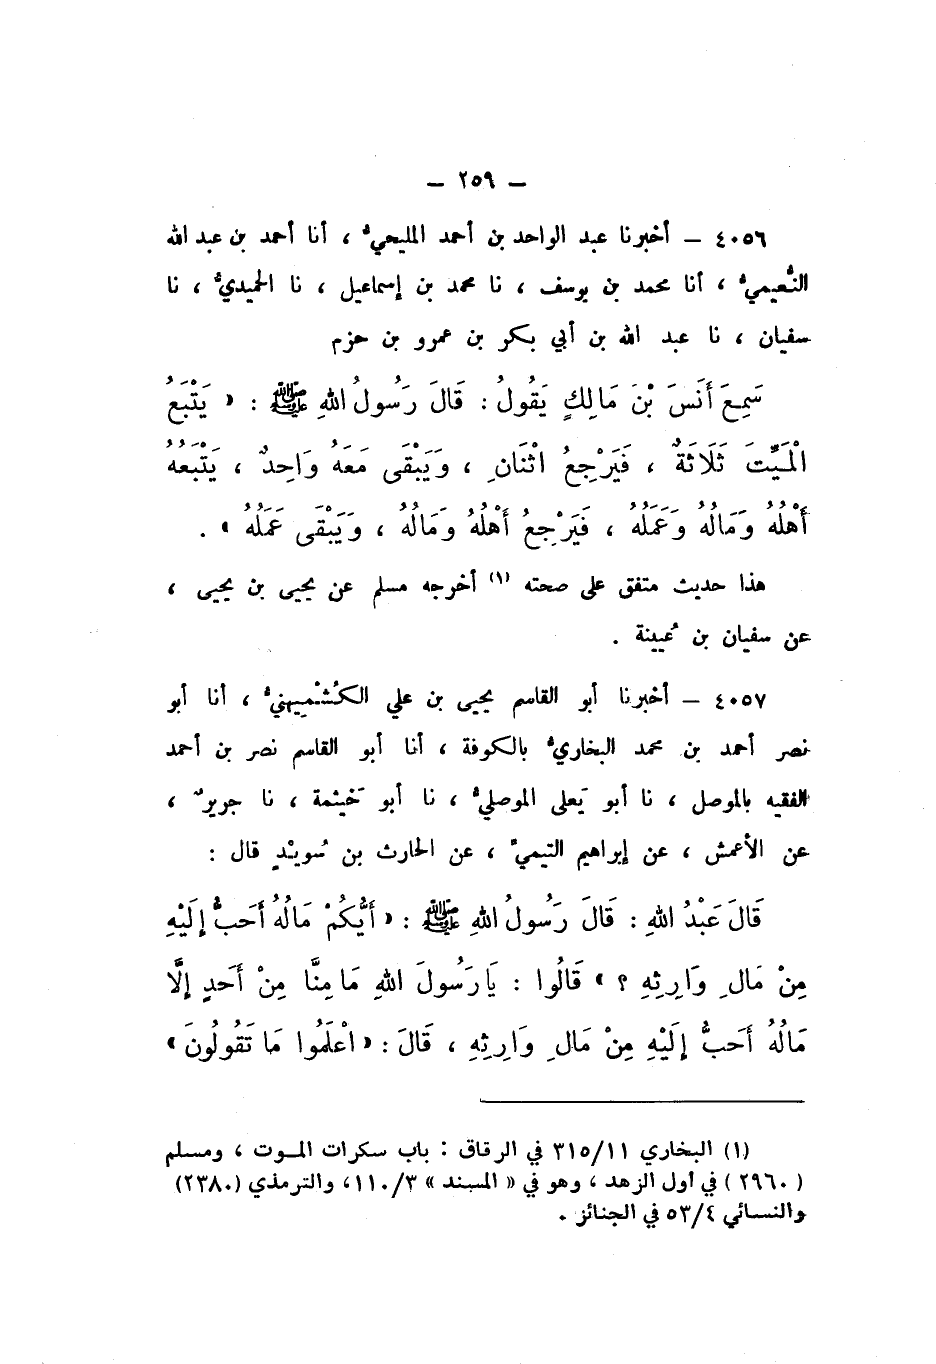 — ٢٥٩ —
٤٠٥٦ — أخبرنا عبد الواحد بن أحمد المليحيُّ ، أنا أحمد بن عبد الله
النُّعيميُّ ، أنا محمد بن يوسف ، نا محمد بن إسماعيل ، نا الحميديُّ ، نا
سفيان ، نا عبد الله بن أبي بكر بن عمرو بن حزم
سَمِعَ أَنَسَ بْنَ مَالِكٍ يَقُولُ : قَالَ رَسُولُ اللهِ ﷺ : « يَتْبَعُ
الْمَيِّتَ ثَلَاثَةٌ ، فَيَرْجِعُ اثْنَانِ ، وَيَبْقَى مَعَهُ وَاحِدٌ ، يَتْبَعُهُ
أَهْلُهُ وَمَالُهُ وَعَمَلُهُ ، فَيَرْجِعُ أَهْلُهُ وَمَالُهُ ، وَيَبْقَى عَمَلُهُ » .
هذا حديث متفق على صحته (١) أخرجه مسلم عن يحيى بن يحيى ،
عن سفيان بن عُيينة .
٤٠٥٧ — أخبرنا أبو القاسم يحيى بن علي الكُشْمِيهنيُّ ، أنا أبو
نصر أحمد بن محمد البخاريُّ بالكوفة ، أنا أبو القاسم نصر بن أحمد
الفقيه بالموصل ، نا أبو يَعلى الموصليُّ ، نا أبو خَيثمة ، نا جريرٌ ،
عن الأعمش ، عن إبراهيم التيميِّ ، عن الحارث بن سُويْدٍ قال :
قَالَ عَبْدُ اللهِ : قَالَ رَسُولُ اللهِ ﷺ : « أَيُّكُمْ مَالُهُ أَحَبُّ إِلَيْهِ
مِنْ مَالِ وَارِثِهِ ؟ » قَالُوا : يَا رَسُولَ اللهِ مَا مِنَّا مِنْ أَحَدٍ إِلَّا
مَالُهُ أَحَبُّ إِلَيْهِ مِنْ مَالِ وَارِثِهِ ، قَالَ : « اعْلَمُوا مَا تَقُولُونَ »
(١) البخاري ٣١٥/١١ في الرقاق : باب سكرات المـوت ، ومسلم
( ٢٩٦٠ ) في أول الزهد ، وهو في « المسند » ١١٠/٣، والترمذي (٢٣٨٠)
والنسائي ٥٣/٤ في الجنائز .